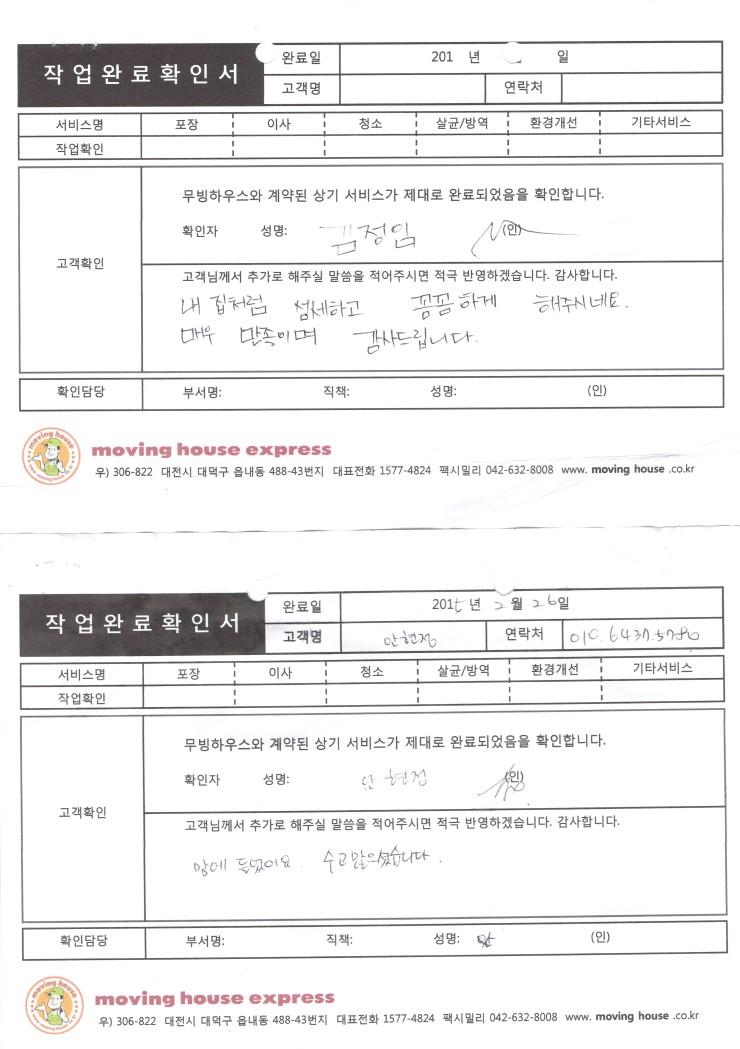 작업완료확인서
완료일 201 년 일
고객명 연락처
서비스명 포장 이사 청소 살균/방역 환경개선 기타서비스
작업확인
고객확인
무빙하우스와 계약된 상기 서비스가 제대로 완료되었음을 확인합니다.
확인자 성명: 김정임 (인)
고객님께서 추가로 해주실 말씀을 적어주시면 적극 반영하겠습니다. 감사합니다.
내 집처럼 섬세하고 꼼꼼하게 해주시네요.
매우 만족이며 감사드립니다.
확인담당 부서명: 직책: 성명: (인)
moving house
moving house express
우) 306-822 대전시 대덕구 읍내동 488-43번지 대표전화 1577-4824 팩시밀리 042-632-8008 www. moving house .co.kr
작업완료확인서
완료일 2015 년 2 월 26일
고객명 안현정 연락처 010. 6437.5780
서비스명 포장 이사 청소 살균/방역 환경개선 기타서비스
작업확인
고객확인
무빙하우스와 계약된 상기 서비스가 제대로 완료되었음을 확인합니다.
확인자 성명: 안현정 (인)
고객님께서 추가로 해주실 말씀을 적어주시면 적극 반영하겠습니다. 감사합니다.
맘에 들었어요. 수고많으셨습니다.
확인담당 부서명: 직책: 성명: (인)
moving house
moving house express
우) 306-822 대전시 대덕구 읍내동 488-43번지 대표전화 1577-4824 팩시밀리 042-632-8008 www. moving house .co.kr